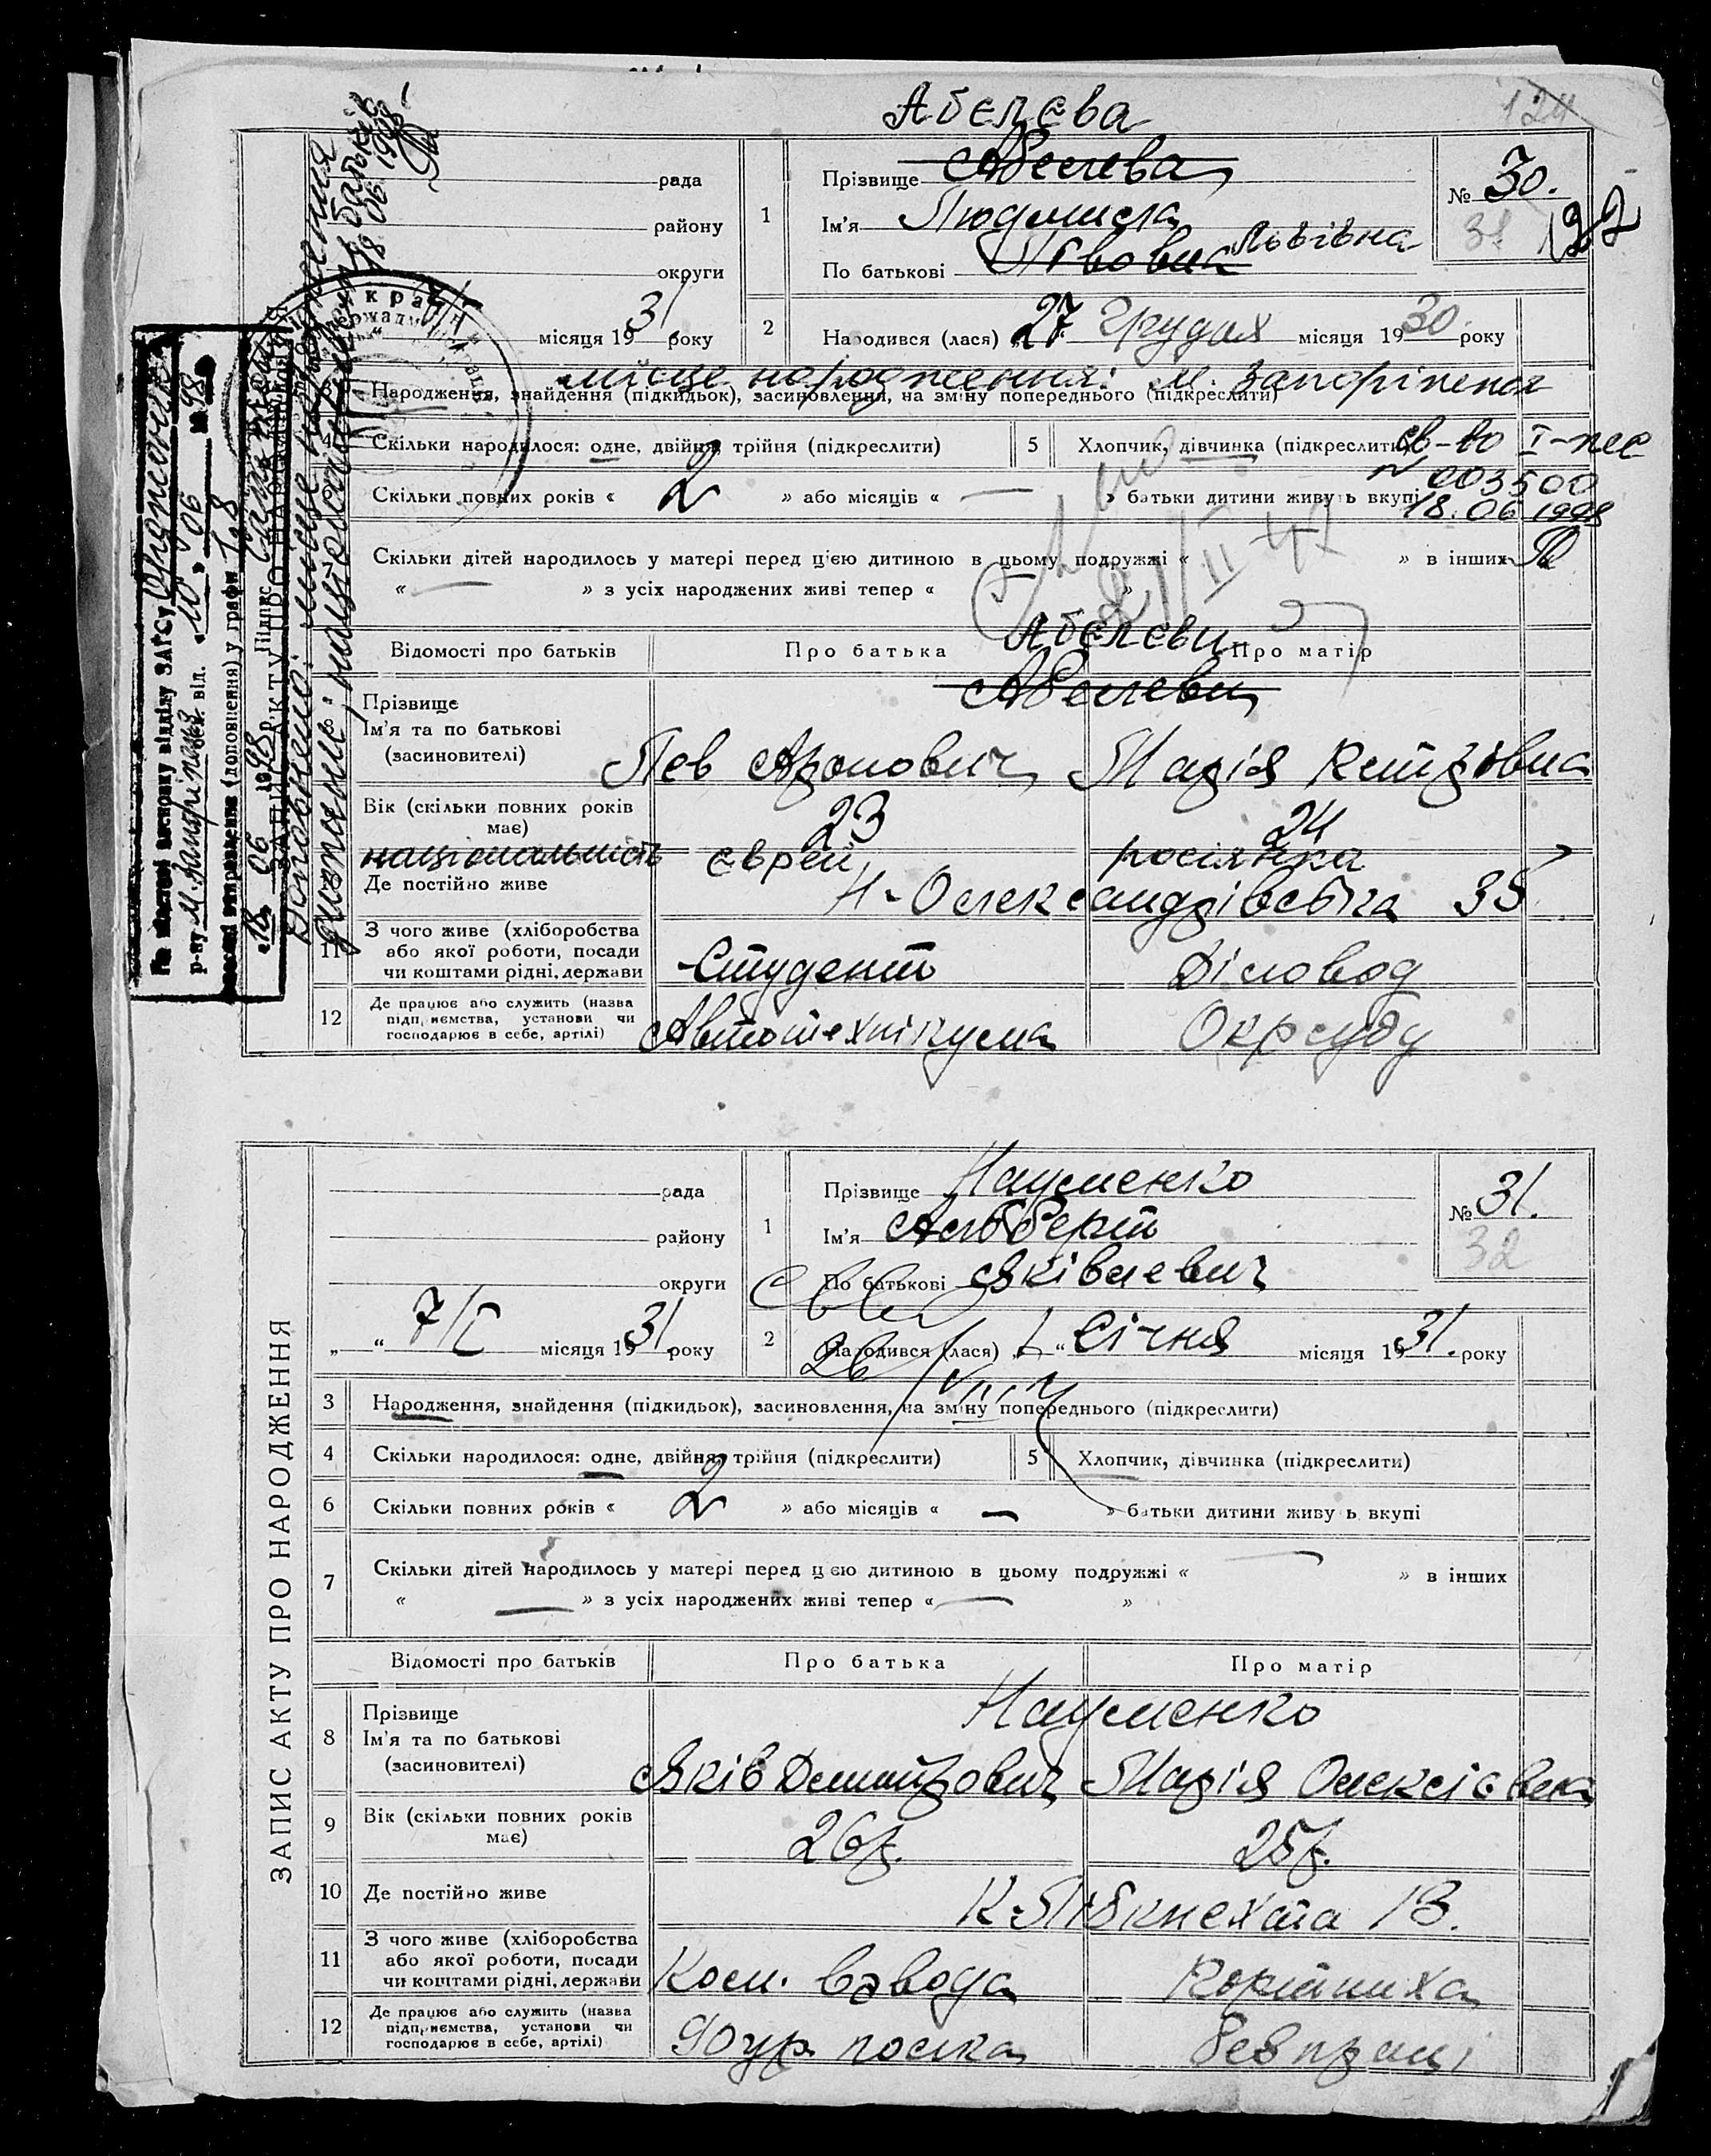 124
Абєлєва
рада
району
округи
1
Прізвище Абелева
Ім'я Людмила
По батькові Львовна Львівна
№ 30.
31
122
31
місяця 19 року
2
Народився (лася) 27 грудня місяця 1930 року
місце народження: м. Запоріжжя
Народження, знайдення (підкидьок), засиновлення, на зміну попереднього (підкреслити)
4
Скільки народилося: одне, двійня, трійня (підкреслити)
5
Хлопчик, дівчинка (підкреслити)
св-во I-жс
№ 003500
18.06.1998
Скільки повних років « 2 » або місяців « — » батьки дитини живуть вкупі
Скільки дітей народилось у матері перед цією дитиною в цьому подружжі « » в інших
« — » з усіх народжених живі тепер « »
21/II 47
Відомості про батьків
Про батька
Про матір
Абєлєви
Абелеви
Прізвище
Ім'я та по батькові
(засиновителі)
Лев Аронович
Марія Дмитрівна
Вік (скільки повних років
має)
23
24
національність єврей росіянка
Де постійно живе
Н-Олександрівська 35
11
З чого живе (хліборобства
або якої роботи, посади
чи коштами рідні, держави
Студент
Діловод
12
Де працює або служить (назва
підприємства, установи чи
господарює в себе, артілі)
Автотехнікума
Окрсуду
На підставі висновку відділу ЗАГСу Орджонік.
р-ну м. Запоріжжя від «10» 06 1998
внесені виправлення (доповнення) у графи 1,8
«18» 06 1998 Підпис
Доповнено: місце народження
дитини; національність батьків
18.06.1998
ЗАПИС АКТУ ПРО НАРОДЖЕННЯ
рада
району
округи
„ “ 7/I місяця 1931 року
1
Прізвище Науменко
Ім'я Альберт
По батькові Яківлевич
№ 31.
32
2
Народився (лася) „1“ Січня місяця 1931. року
3
Народження, знайдення (підкидьок), засиновлення, на зміну попереднього (підкреслити)
4
Скільки народилося: одне, двійня, трійня (підкреслити)
5
Хлопчик, дівчинка (підкреслити)
6
Скільки повних років « 2 » або місяців « — » батьки дитини живуть вкупі
7
Скільки дітей народилось у матері перед цією дитиною в цьому подружжі « — » в інших
« — » з усіх народжених живі тепер « — »
Відомості про батьків
Про батька
Про матір
8
Прізвище
Ім'я та по батькові
(засиновителі)
Науменко
Яків Дмитрович
Марія Олексієвна
9
Вік (скільки повних років
має)
26р.
25р.
10
Де постійно живе
К-Лібкнехта 13.
11
З чого живе (хліборобства
або якої роботи, посади
чи коштами рідні, держави
Ком. взвода
12
Де працює або служить (назва
підприємства, установи чи
господарює в себе, артілі)